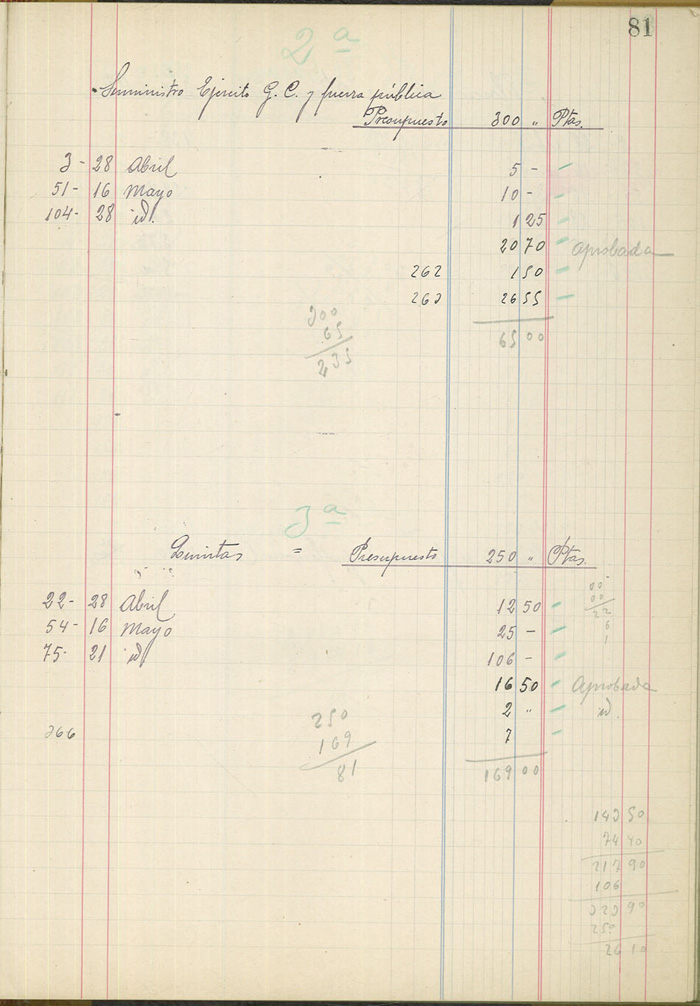 81
2ª
Suministro Ejército G. C. y fuerza pública
Presupuesto 300 " Ptas.
3 - 28 Abril 5 -
51 - 16 Mayo 10 -
104 - 28 id. 1 25
20 70 Aprobada
262 1 50
263 26 55
300
65
235
65 00
3ª
Quintas = Presupuesto 250 " Ptas.
22 - 28 Abril 12 50
54 - 16 Mayo 25 -
75 - 21 id 106 -
16 50 Aprobada
2 " id.
266 7
250
169
81
169 00
143 50
74 40
217 90
106
323 90
26 10